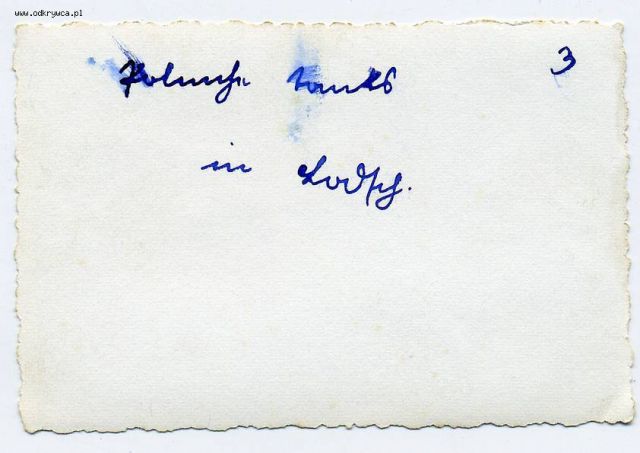 www.odkrywca.pl
Polnische tanks 3
in Lodsch.